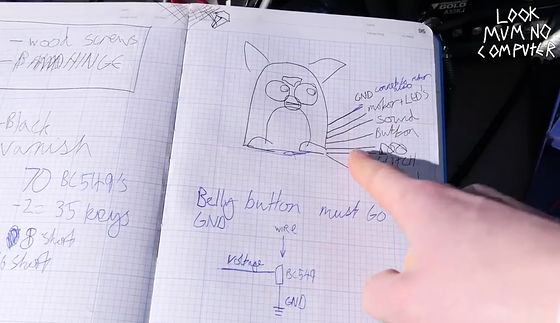 LOOK
MUM NO
COMPUTER
- wood screws
HINGE
Black
vanish
70 BC549's
-2= 35 keys
short
short
GND
motor + LED's
sound
Button
Belly button must GO
GND
wire
voltage
BC549
GND
GOLD